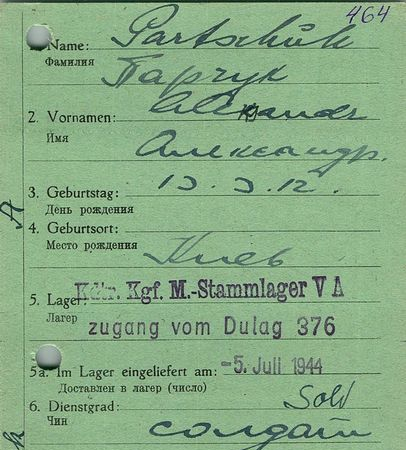 464
1. Name: Partschuk
Фамилия
Парчук
2. Vornamen: Alexandr
Имя
Александр.
3. Geburtstag: 13.3.12.
День рождения
4. Geburtsort:
Место рождения Киев
Kdtr. Kgf. M.-Stammlager V A
5. Lager:
Лагер
zugang vom Dulag 376
5a. Im Lager eingeliefert am: -5. Juli 1944
Доставлен в лагер (число)
6. Dienstgrad: Sold
Чин солдат